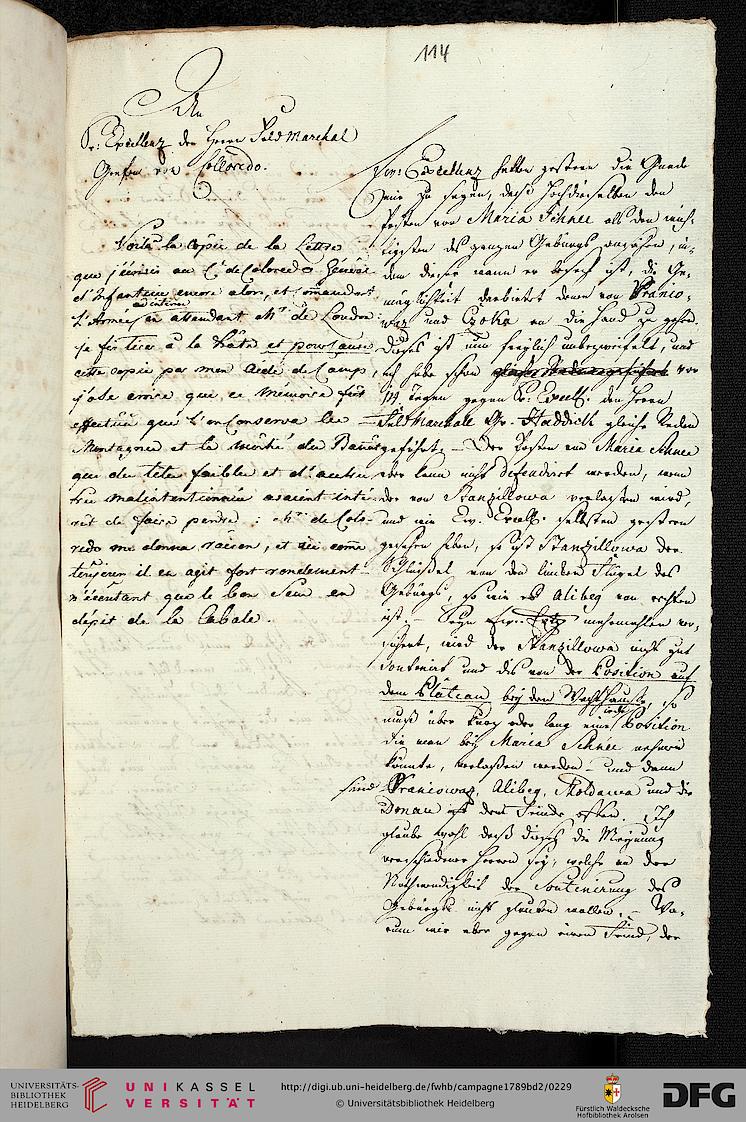 114
An
Sr: Excellenz den Herrn Feldmarchal
Grafen von Colloredo.
Voila la Copie de la Lettre
que j'écrivis au C: de Coloredo Général
d'Infanterie encore alors, et Comandant
ad interim
L'Armée en attendant Mr: de Loudon:
je fis tirer à la hâte et pour cause
cette copie par mon Aide de Camp,
j'ose croire que ce Mémoire fut
effectué que l'on Conserva les
Montagnes et la moitié du Banat
que des tetes faibles et d'autres
très malintentionnés avaient inte-
rêt de faire perdre: Mr: de Colo-
redo me donna raison, et ici come
toujours il en agit fort rondement
n'écoutant que le bon Sens en
dépit de la Cabale.
Eur: Excellenz hatten gestern die Gnade
mir zu sagen, daß Hochdieselben den
Posten von Maria Schnee als den wich-
tigsten des ganzen Gebürgs ansehen, in-
dem dieser wann er besezt ist, die Ge-
meinschaft darbietet denen von Vranio-
waz und Czoka an die Hand zu gehen.
Dieses ist nun freylich unbezweifelt, und
ich habe schon vor
14 Tägen gegen Sr: Excell: den Herrn
Feldmarchale Gr: Haddick gleiche Reden
geführt. – Der Posten von Maria Schnee
aber kann nicht defendirt werden, wenn
der von Stanzillowa verlassen wird,
und wie Eur. Excell: selbsten gestern
gesehen haben, so ist Stanzillowa der
Schlüssel von dem linken Flügel des
Gebürgs, so wie es Alibeg vom rechten
ist. –
wird der Stanzillowa nicht gut
Soutenirt und dis von der Position auf
dem Plateau bey dem Wachthause, so
muß über kurz oder lang eine Position
die man bey Maria Schnee nehmen
könnte, verlassen werden – und dann
sind Vraniowaz, Alibeg, Moldawa und die
Donau dem Feinde offen. Ich
glaube wohl daß dieses die Meynung
verschiedener Herren sey, welche an der
Nothwendigkeit der Soutenirung des
Gebürgs nicht glauben wollen. – Wa-
rum wir aber gegen einen Feind, der
UNIVERSITÄTS-
BIBLIOTHEK
HEIDELBERG
UNIKASSEL
VERSITÄT
http://digi.ub.uni-heidelberg.de/fwhb/campagne1789bd2/0229
© Universitätsbibliothek Heidelberg
Fürstlich Waldecksche
Hofbibliothek Arolsen
DFG